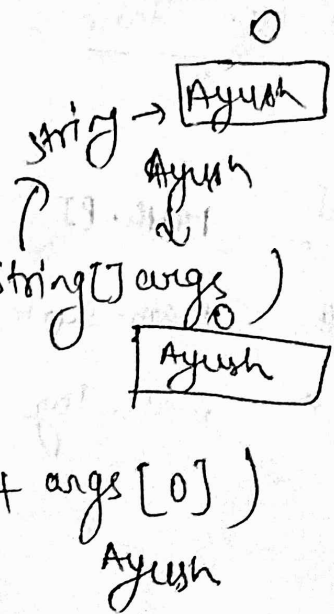 0
string → Ayush
Ayush
String[] args )
0
Ayush
+ args [0] )
Ayush